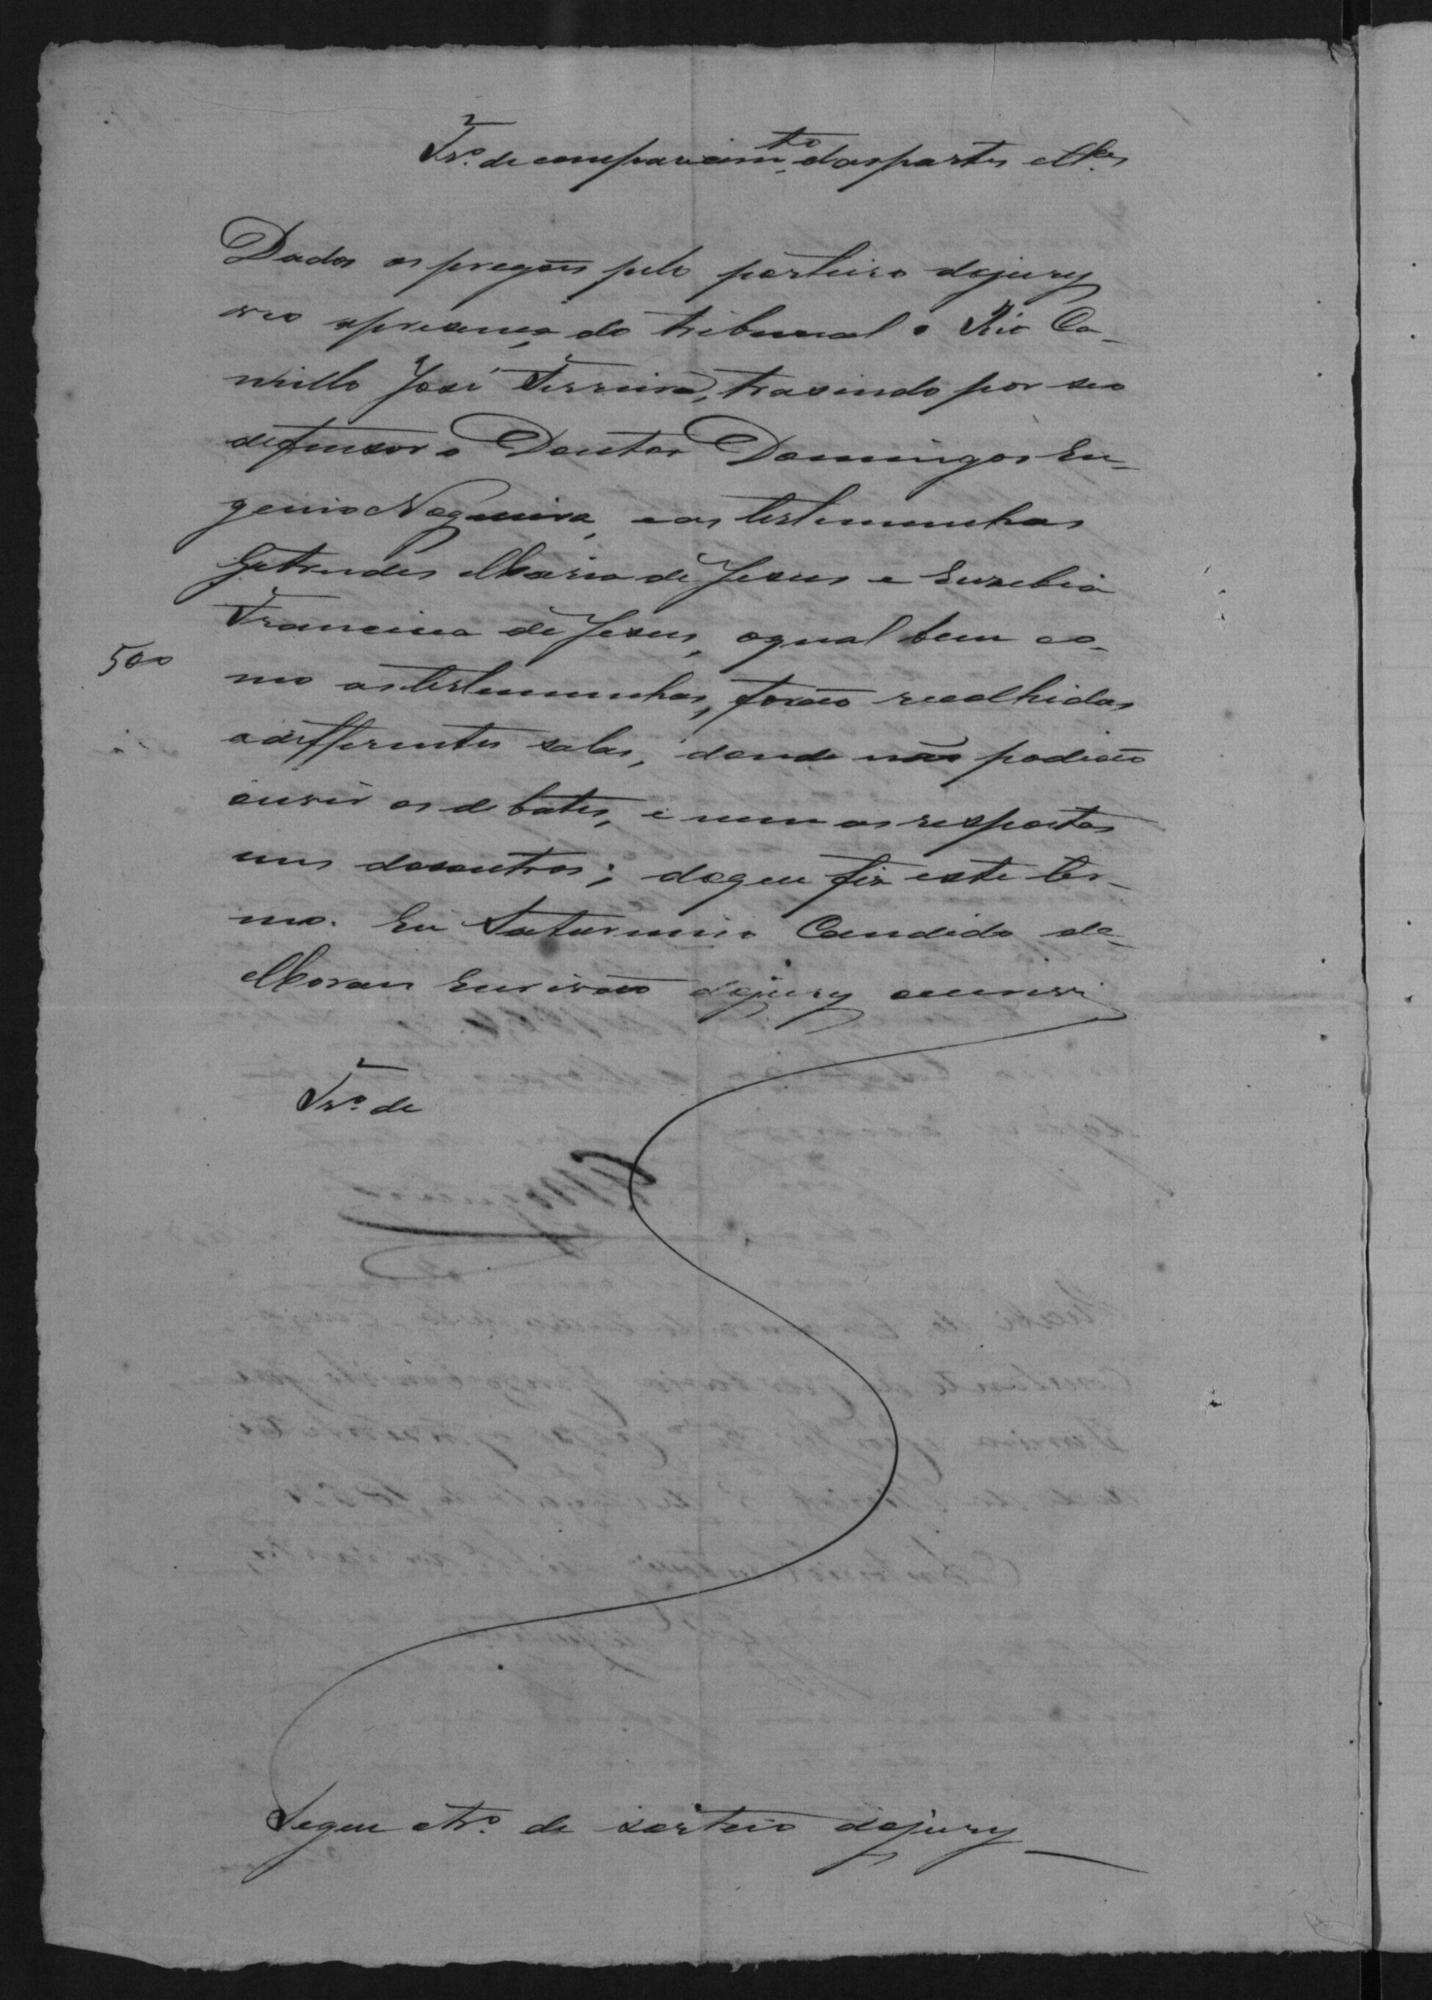 Tr.º de comparecim.to das partes e tt.as
Dados os pregões pelo porteiro do jury
veio a presença do tribunal o Réo Ca-
millo José Ferreira, trasendo por seo
defensor o Doutor Domingos Eu-
genio Nogueira, e as testemunhas
Getrudes Maria de Jesus e Euzebia
Francisca de Jesus, o qual bem co-
500
mo as testemunhas, forão recolhidas
a differentes salas, donde não podião
ouvir os debates, e nem as respostas
uns dos outros; do que fiz este ter-
mo. Eu Saturnino Candido de
Moraes Escrivão do jury escrevi
Tr.º de
Segue o tr.º de sorteio do jury